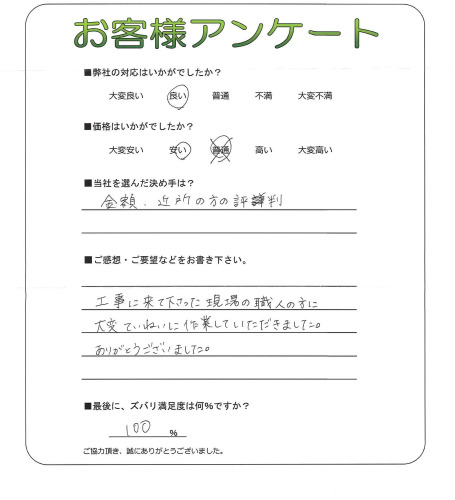 お客様アンケート
■弊社の対応はいかがでしたか？
大変良い 良い 普通 不満 大変不満
■価格はいかがでしたか？
大変安い 安い 普通 高い 大変高い
■当社を選んだ決め手は？
金額、近所の方の評判
■ご感想・ご要望などをお書き下さい。
工事に来て下さった現場の職人の方に
大変ていねいに作業していただきました。
ありがとうございました。
■最後に、ズバリ満足度は何%ですか？
100 %
ご協力頂き、誠にありがとうございました。